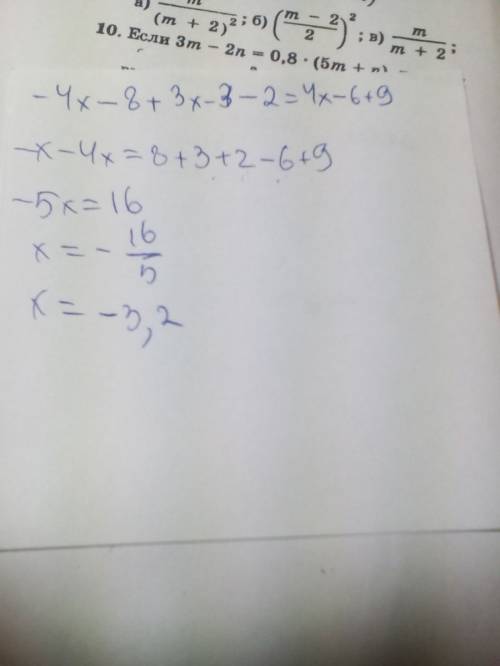 а) m/(m + 2)²; б) ((m − 2)/2)²; в) m/(m + 2);
10. Если 3m − 2n = 0,8 · (5m + n) −
-4x-8+3x-3-2=4x-6+9
-x-4x=8+3+2-6+9
-5x=16
x=-16/5
x=-3,2